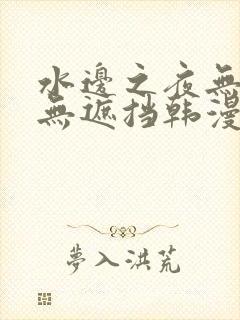 水邊之夜無
無遮挡韩漫
夢入洪荒